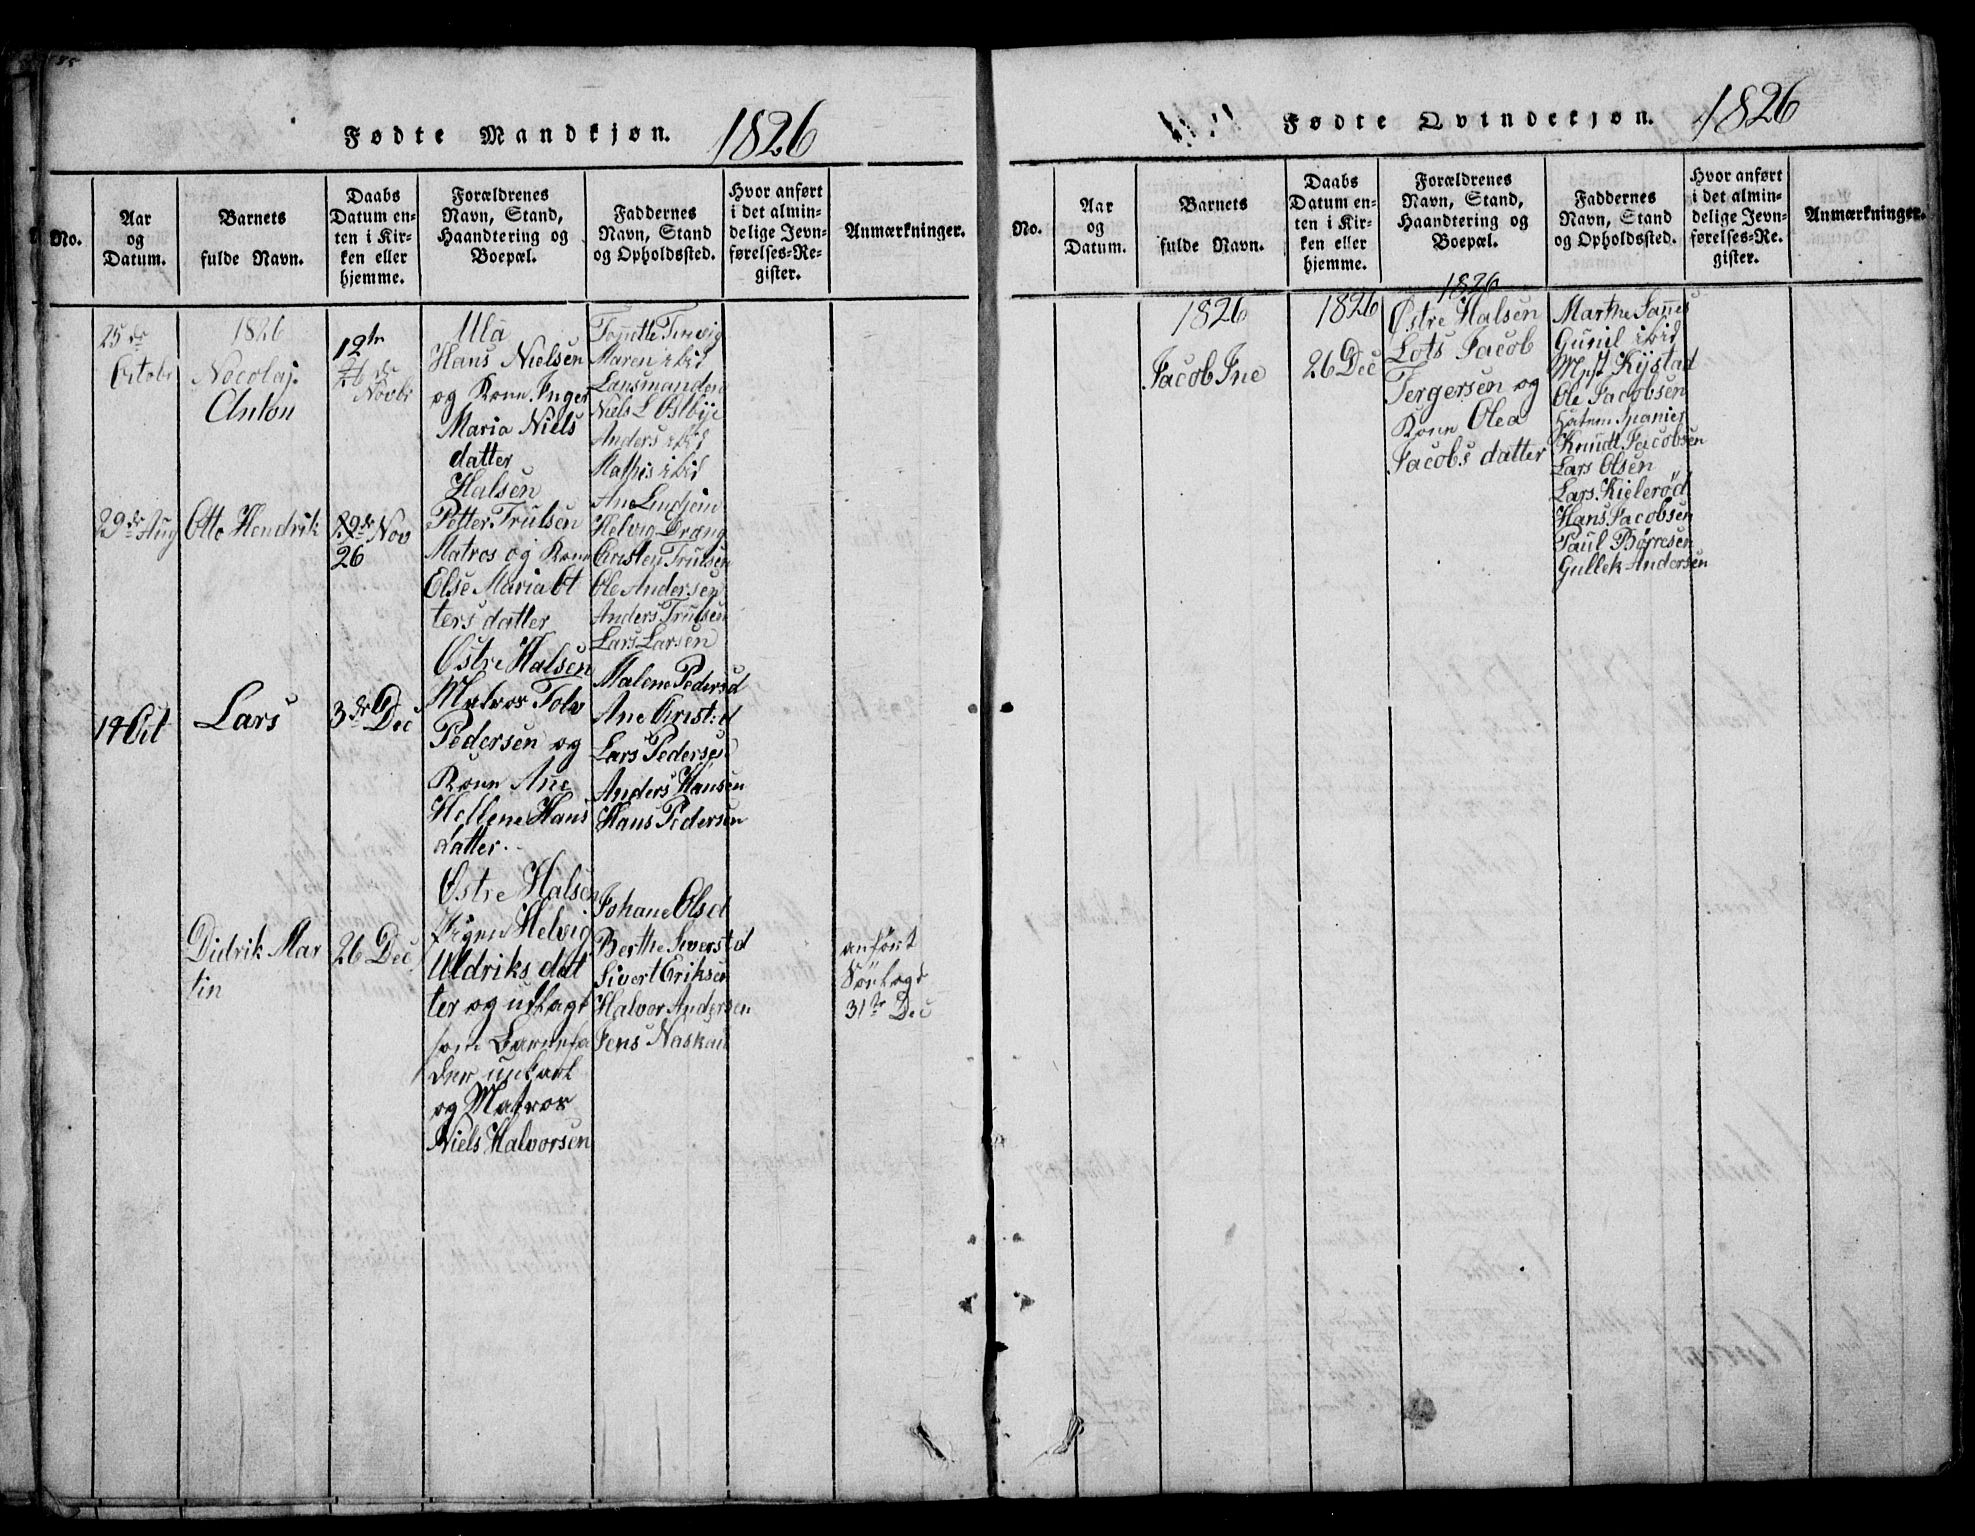 Fødte Mandkjøn. 1826
No.
Aar
og
Datum.
Barnets
fulde Navn.
Daabs
Datum en-
ten i Kir-
ken eller
hjemme.
Forældrenes
Navn, Stand,
Haandtering og
Boepæl.
Faddernes
Navn, Stand
og Opholdssted.
Hvor anført
i det almin-
delige Jevn-
førelses-Re-
gister.
Anmærkninger.
25de
Octobr
1826
Nocolaj
Anton
12te
Novbr
Ula
Hans Nielsen
og Kone Inger
Maria Niels
datter
Maren ibid
Lansmanden
Niels L Østbye
Anders ibid
Mathis ibid
29de Aug
Otto Hendrik
Nov
26
Halsen
Petter Trulsen
Matros og Kone
Else Maria Ot
ters datter
Ane Lindhjem
Helvig Drang
Christen Trulsen
Ole Andersen
Anders Trulsen
Lars Larsen
14 Oct
Lars
3de Dec
Østre Halsen
Matros Tolv
Pedersen og
Kone Ane
Hellene Hans
datter
Malene Pedersd
Ane Christ:d
Lars Pedersen
Anders Hansen
Hans Pedersen
Didrik Mar
tin
26 Dec
Østre Halsen
Pigen Helvig
Uldriks dat
ter og udlagt
som Barnefa
der unkarl
og Matros
Niels Halvorsen
Johane Olsd
Berthe Siverstd
Sivert Eriksen
Halvor Andersen
Jens Naskau
anført
Søndags
31te Dec
Fødte Qvindekjøn. 1826
No.
Aar
og
Datum.
Barnets
fulde Navn.
Daabs
Datum en-
ten i Kir-
ken eller
hjemme.
Forældrenes
Navn, Stand,
Haandtering og
Boepæl.
Faddernes
Navn, Stand
og Opholdssted.
Hvor anført
i det almin-
delige Jevn-
førelses-Re-
gister.
Anmærkninger.
1826
Jacob Ine
1826
26 Dec
1826
Østre Halsen
Lots Jacob
Tergersen og
Kone Olea
Jacobs datter
Marthe Sannes
Gunil ibid
Mst Kystad
Ole Jacobsen
Knudt Jacobsen
Lars Olsen
Lars Kielerød
Hans Jacobsen
Paul Børresen
Gullek Andersen